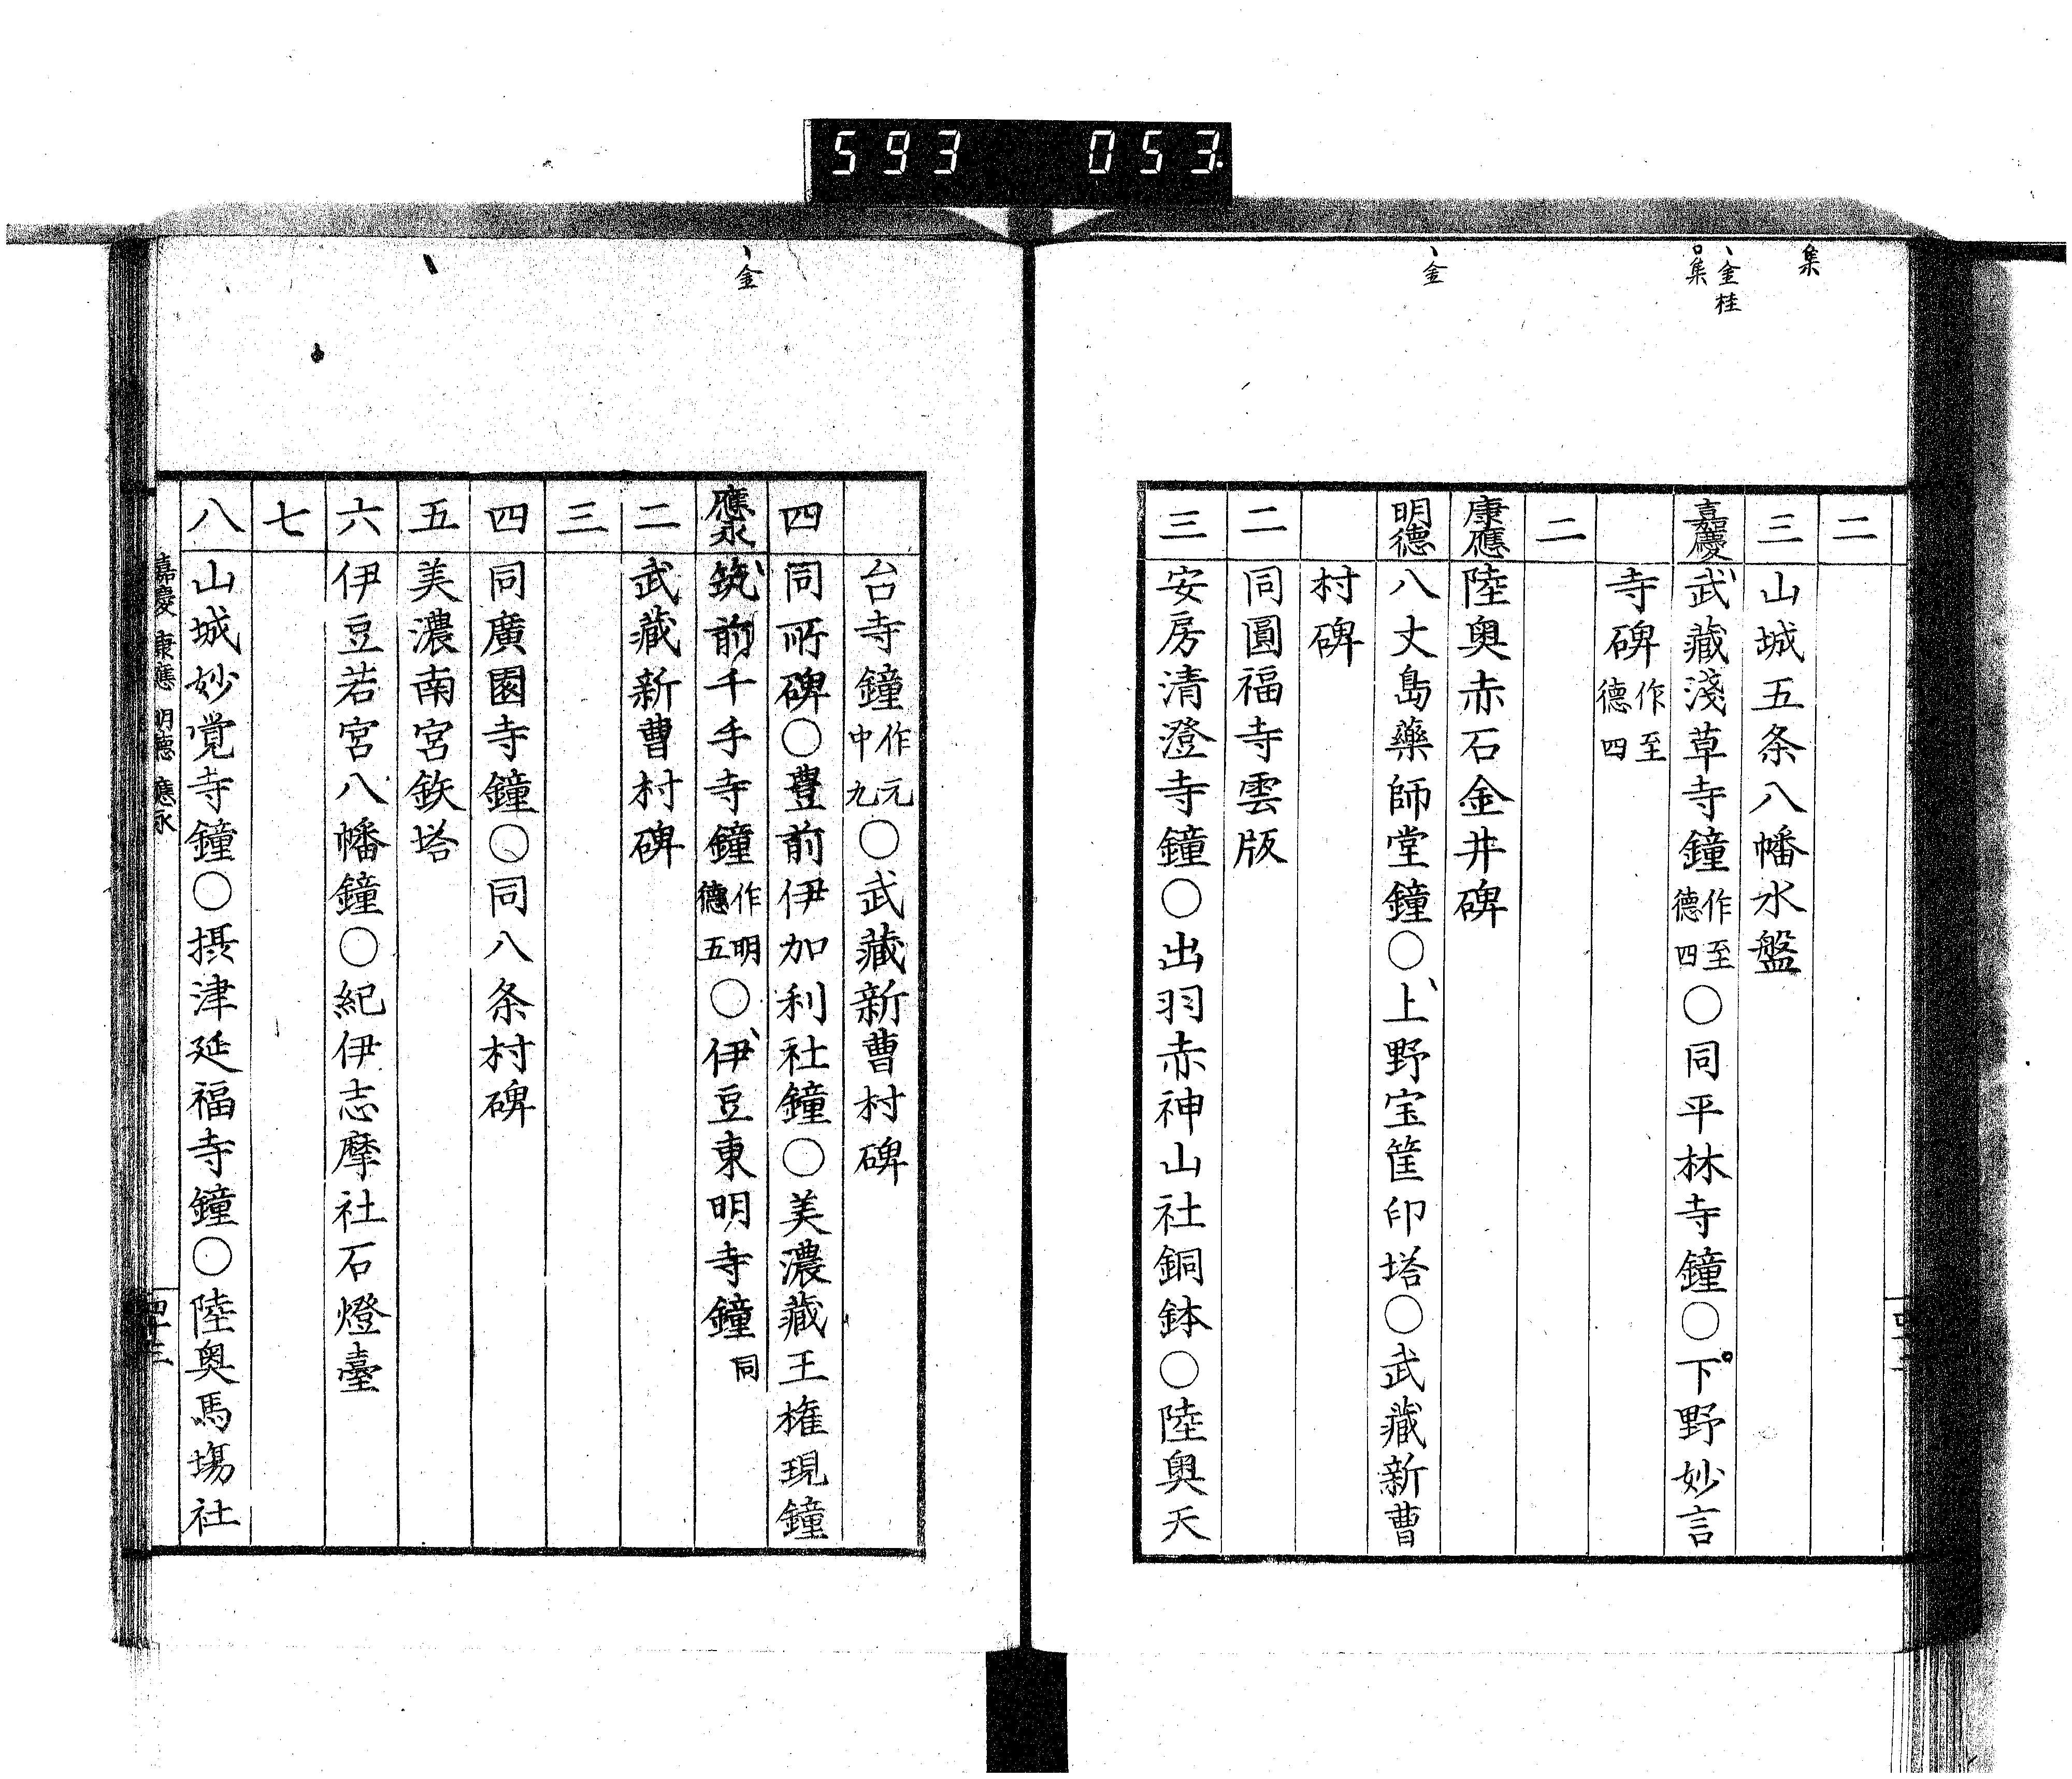 593 053
集
、金桂
集
、金
二
三 山城五条八幡水盤
嘉慶 武藏淺草寺鐘作至德四〇同平林寺鐘〇下野妙言
寺碑作至德四
二
康應 陸奥赤石金井碑
明德 八丈島藥師堂鐘〇上野宝筐印塔〇武藏新曹
村碑
二 同圓福寺雲版
三 安房清澄寺鐘〇出羽赤神山社銅鉢〇陸奥天
、金
台寺鐘作元中九〇武藏新曹村碑
四 同所碑〇豊前伊加利社鐘〇美濃藏王権現鐘
應永 筑前千手寺鐘作明德五〇伊豆東明寺鐘同
二 武藏新曹村碑
三
四 同廣園寺鐘〇同八条村碑
五 美濃南宮鉄塔
六 伊豆若宮八幡鐘〇紀伊志摩社石燈臺
七
八 山城妙覚寺鐘〇摂津延福寺鐘〇陸奥馬塲社
嘉慶 康應 明德 應永
四十三